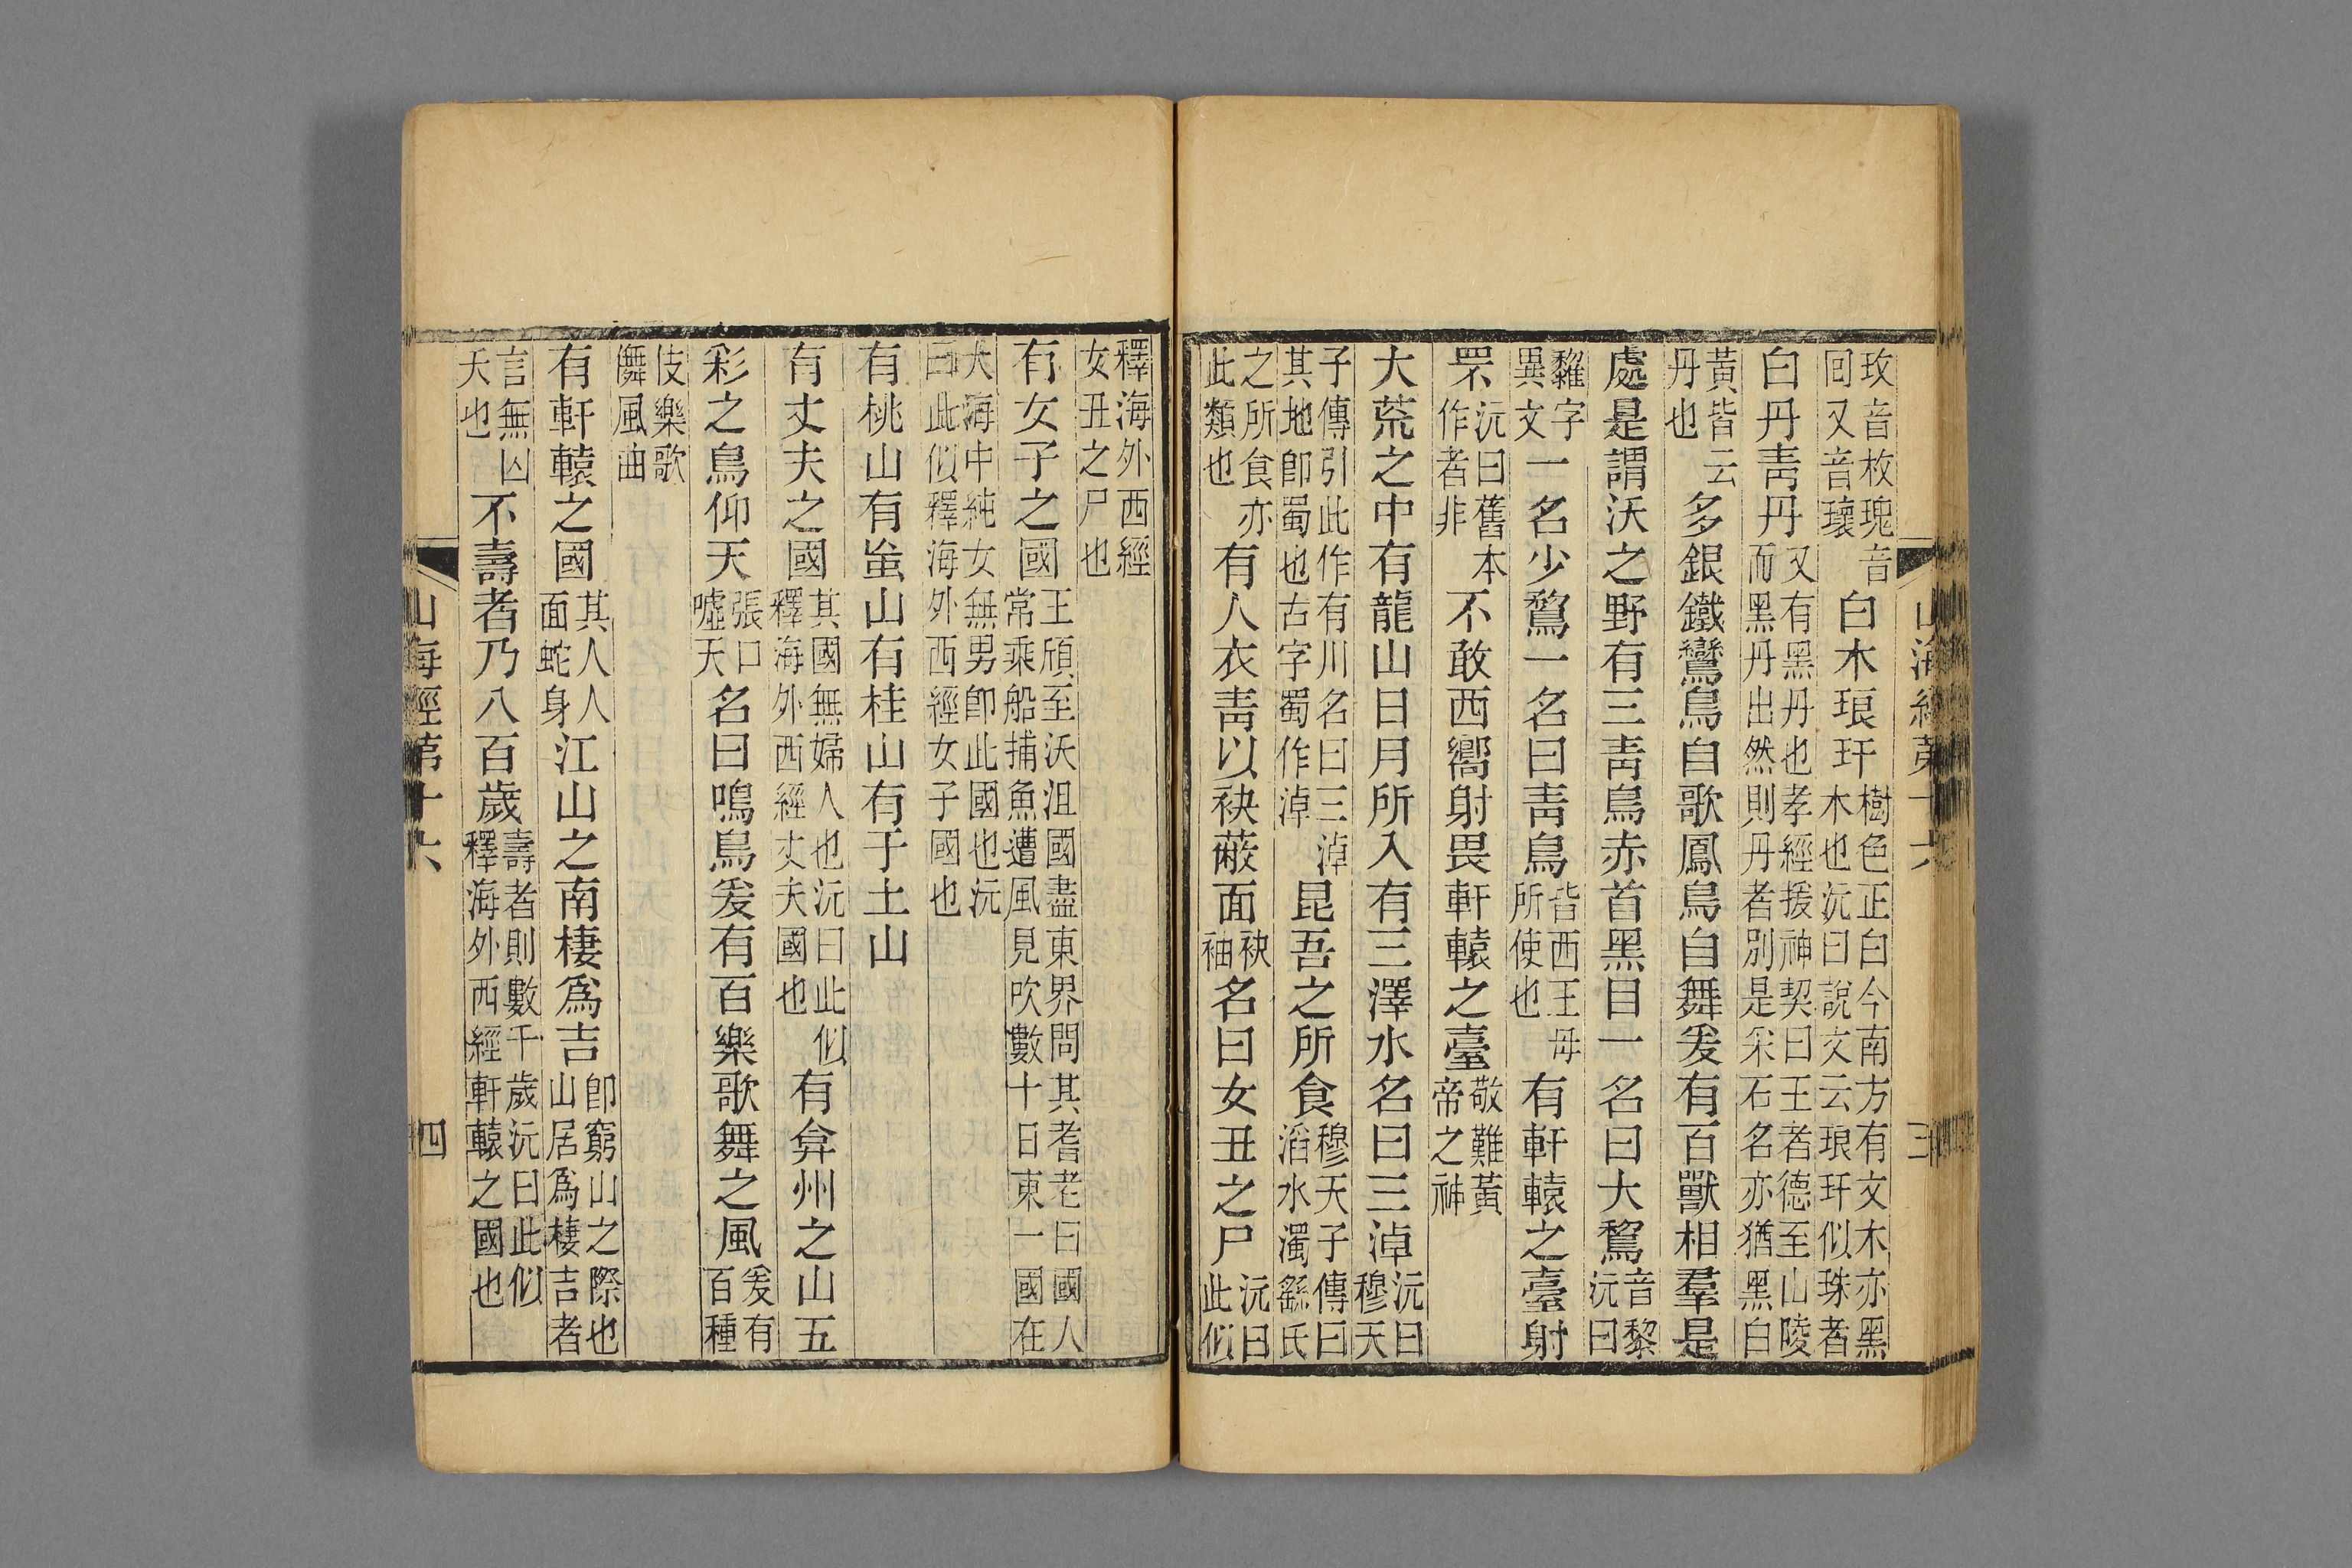 玫音枚瑰音
回又音瓌
白木琅玕
樹色正白今南方有文木亦黑
木也沅曰說文云琅玕似珠者
白丹青丹
又有黑丹也孝經援神契曰王者德至山陵
而黑丹出然則丹者別是采石名亦猶黑白
黃皆云
丹也
多銀鐵鸞鳥自歌鳳鳥自舞爰有百獸相羣是
處是謂沃之野有三青鳥赤首黑目一名曰大鵹
音黎
沅曰
鷄字
異文
一名少鵹一名曰青鳥
皆西王母
所使也
有軒轅之臺射
罘
沅曰舊本
作者非
不敢西嚮射畏軒轅之臺
敬難黃
帝之神
大荒之中有龍山日月所入有三澤水名曰三淖
沅曰
穆天
子傳引此作有川名曰三淖
其地卽蜀也古字蜀作淖
昆吾之所食
穆天子傳曰
滔水濁繇氏
之所食亦
此類也
有人衣青以袂蔽面
袂
袖
名曰女丑之尸
沅曰
此似
山海經第十六
三
釋海外西經
女丑之尸也
有女子之國
王頎至沃沮國盡東界問其耆老曰國人
常乘船捕魚遭風見吹數十日東一國在
大海中純女無男卽此國也沅
曰此似釋海外西經女子國也
有桃山有䖟山有桂山有于土山
有丈夫之國
其國無婦人也沅曰此似
釋海外西經丈夫國也
有弇州之山五
彩之鳥仰天
張口
噓天
名曰鳴鳥爰有百樂歌舞之風
爰有
百種
伎樂歌
儛風曲
有軒轅之國
其人人
面蛇身
江山之南棲爲吉
卽窮山之際也
山居爲棲吉者
言無凶
夭也
不壽者乃八百歲
壽者則數千歲沅曰此似
釋海外西經軒轅之國也
山海經第十六
四